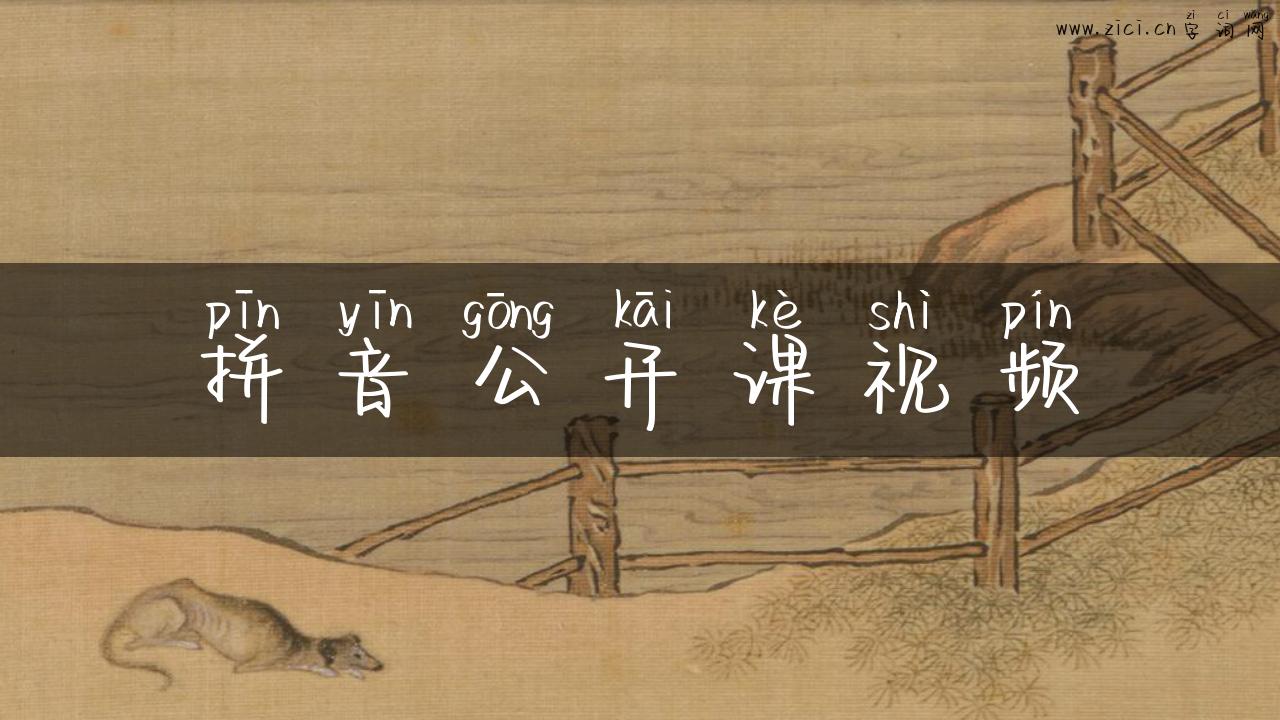 zì cí wǎng
www.zici.cn 字词网
pīn yīn gōng kāi kè shì pín
拼音公开课视频